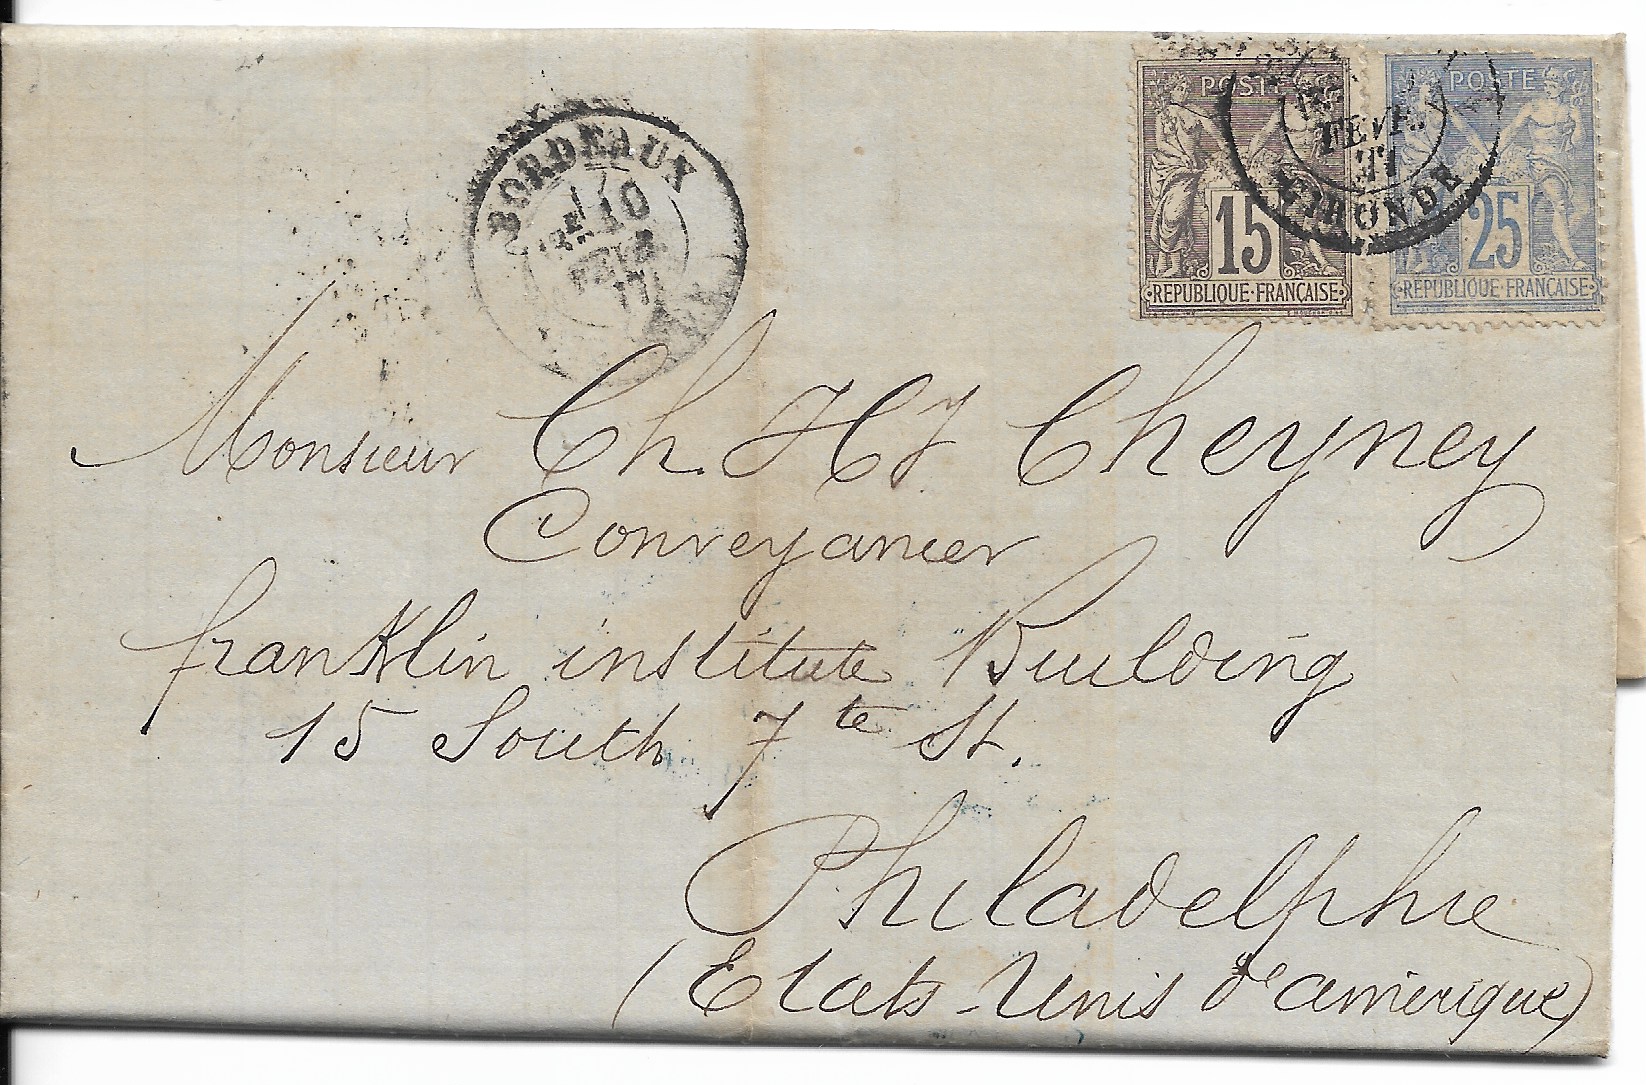 POSTE
15
REPUBLIQUE·FRANÇAISE
POSTE
25
REPUBLIQUE·FRANÇAISE
FEVR.
77
GIRONDE
BORDEAUX
10
FEVR
77
Monsieur Ch. H J Cheyney
Conveyancer
franklin institute Building
15 South 7te St.
Philadelphie
(Etats-Unis d'amérique)